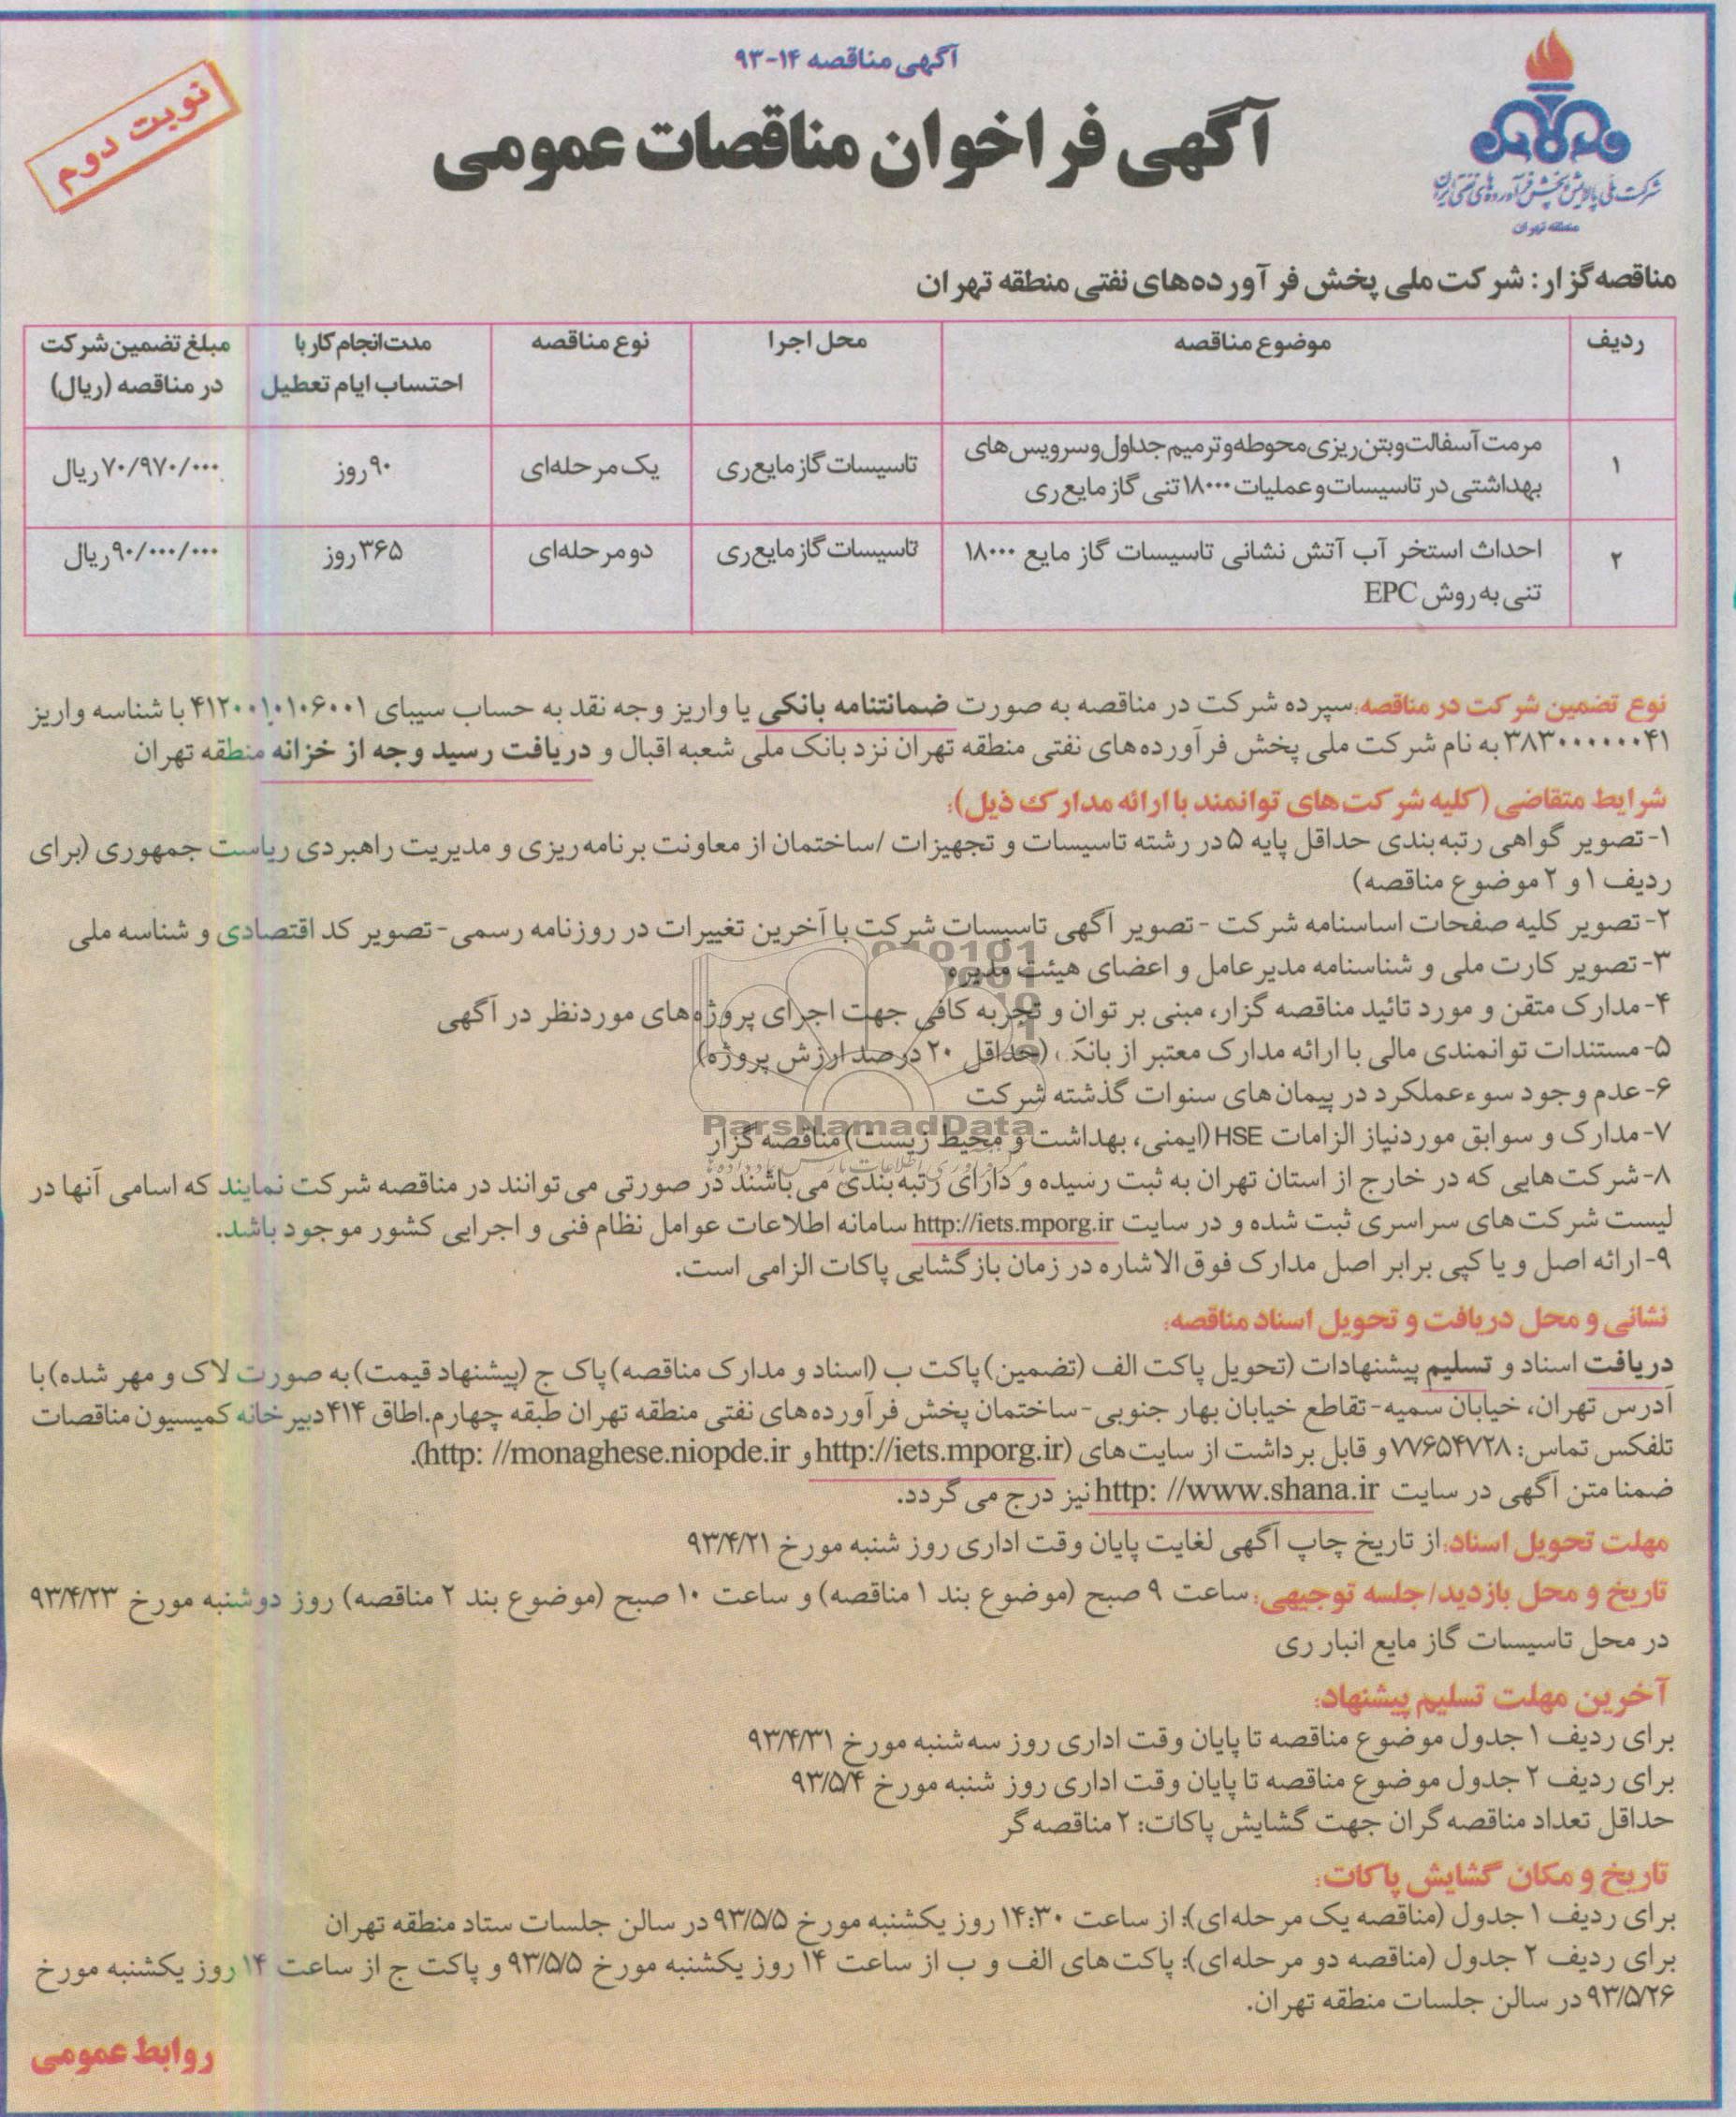 آگهی مناقصه ۱۴-۹۳
آگهی فراخوان مناقصات عمومی
نوبت دوم
شرکت ملی پالایش و پخش فرآورده‌های نفتی ایران
منطقه تهران
مناقصه گزار: شرکت ملی پخش فرآورده‌های نفتی منطقه تهران
ردیف | موضوع مناقصه | محل اجرا | نوع مناقصه | مدت انجام کار با احتساب ایام تعطیل | مبلغ تضمین شرکت در مناقصه (ریال)
۱ | مرمت آسفالت و بتن ریزی محوطه و ترمیم جداول و سرویس‌های بهداشتی در تاسیسات و عملیات ۱۸۰۰۰ تنی گاز مایع ری | تاسیسات گاز مایع ری | یک مرحله‌ای | ۹۰ روز | ۷۰/۹۷۰/۰۰۰ ریال
۲ | احداث استخر آب آتش نشانی تاسیسات گاز مایع ۱۸۰۰۰ تنی به روش EPC | تاسیسات گاز مایع ری | دو مرحله‌ای | ۳۶۵ روز | ۹۰/۰۰۰/۰۰۰ ریال
نوع تضمین شرکت در مناقصه: سپرده شرکت در مناقصه به صورت ضمانتنامه بانکی یا واریز وجه نقد به حساب سیبای ۴۱۲۰۰۱۰۱۰۶۰۰۱ با شناسه واریز
۳۸۳۰۰۰۰۰۰۴۱ به نام شرکت ملی پخش فرآورده‌های نفتی منطقه تهران نزد بانک ملی شعبه اقبال و دریافت رسید وجه از خزانه منطقه تهران
شرایط متقاضی (کلیه شرکت‌های توانمند با ارائه مدارک ذیل):
۱- تصویر گواهی رتبه‌بندی حداقل پایه ۵ در رشته تاسیسات و تجهیزات /ساختمان از معاونت برنامه‌ریزی و مدیریت راهبردی ریاست جمهوری (برای
ردیف ۱ و ۲ موضوع مناقصه)
۲- تصویر کلیه صفحات اساسنامه شرکت - تصویر آگهی تاسیسات شرکت با آخرین تغییرات در روزنامه رسمی - تصویر کد اقتصادی و شناسه ملی
۳- تصویر کارت ملی و شناسنامه مدیرعامل و اعضای هیئت مدیره
۴- مدارک متقن و مورد تائید مناقصه گزار، مبنی بر توان و تجربه کافی جهت اجرای پروژه‌های موردنظر در آگهی
۵- مستندات توانمندی مالی با ارائه مدارک معتبر از بانک (حداقل ۲۰ درصد ارزش پروژه)
۶- عدم وجود سوءعملکرد در پیمان‌های سنوات گذشته شرکت
۷- مدارک و سوابق موردنیاز الزامات HSE (ایمنی، بهداشت و محیط زیست) مناقصه گزار
ParsNamadData
۸- شرکت‌هایی که در خارج از استان تهران به ثبت رسیده و دارای رتبه‌بندی می‌باشند در صورتی می‌توانند در مناقصه شرکت نمایند که اسامی آنها در
لیست شرکت‌های سراسری ثبت شده و در سایت http://iets.mporg.ir سامانه اطلاعات عوامل نظام فنی و اجرایی کشور موجود باشد.
۹- ارائه اصل و یا کپی برابر اصل مدارک فوق‌الاشاره در زمان بازگشایی پاکات الزامی است.
نشانی و محل دریافت و تحویل اسناد مناقصه:
دریافت اسناد و تسلیم پیشنهادات (تحویل پاکت الف (تضمین) پاکت ب (اسناد و مدارک مناقصه) پاک ج (پیشنهاد قیمت) به صورت لاک و مهر شده) با
آدرس تهران، خیابان سمیه - تقاطع خیابان بهار جنوبی - ساختمان پخش فرآورده‌های نفتی منطقه تهران طبقه چهارم. اطاق ۴۱۴ دبیرخانه کمیسیون مناقصات
تلفکس تماس: ۷۷۶۵۴۷۲۸ و قابل برداشت از سایت‌های (http://iets.mporg.ir و http: //monaghese.niopde.ir).
ضمنا متن آگهی در سایت http: //www.shana.ir نیز درج می‌گردد.
مهلت تحویل اسناد: از تاریخ چاپ آگهی لغایت پایان وقت اداری روز شنبه مورخ ۹۳/۴/۲۱
تاریخ و محل بازدید/جلسه توجیهی: ساعت ۹ صبح (موضوع بند ۱ مناقصه) و ساعت ۱۰ صبح (موضوع بند ۲ مناقصه) روز دوشنبه مورخ ۹۳/۴/۲۳
در محل تاسیسات گاز مایع انبار ری
آخرین مهلت تسلیم پیشنهاد:
برای ردیف ۱ جدول موضوع مناقصه تا پایان وقت اداری روز سه‌شنبه مورخ ۹۳/۴/۳۱
برای ردیف ۲ جدول موضوع مناقصه تا پایان وقت اداری روز شنبه مورخ ۹۳/۵/۴
حداقل تعداد مناقصه گران جهت گشایش پاکات: ۲ مناقصه گر
تاریخ و مکان گشایش پاکات:
برای ردیف ۱ جدول (مناقصه یک مرحله‌ای): از ساعت ۱۴:۳۰ روز یکشنبه مورخ ۹۳/۵/۵ در سالن جلسات ستاد منطقه تهران
برای ردیف ۲ جدول (مناقصه دو مرحله‌ای): پاکت‌های الف و ب از ساعت ۱۴ روز یکشنبه مورخ ۹۳/۵/۵ و پاکت ج از ساعت ۱۴ روز یکشنبه مورخ
۹۳/۵/۲۶ در سالن جلسات منطقه تهران.
روابط عمومی